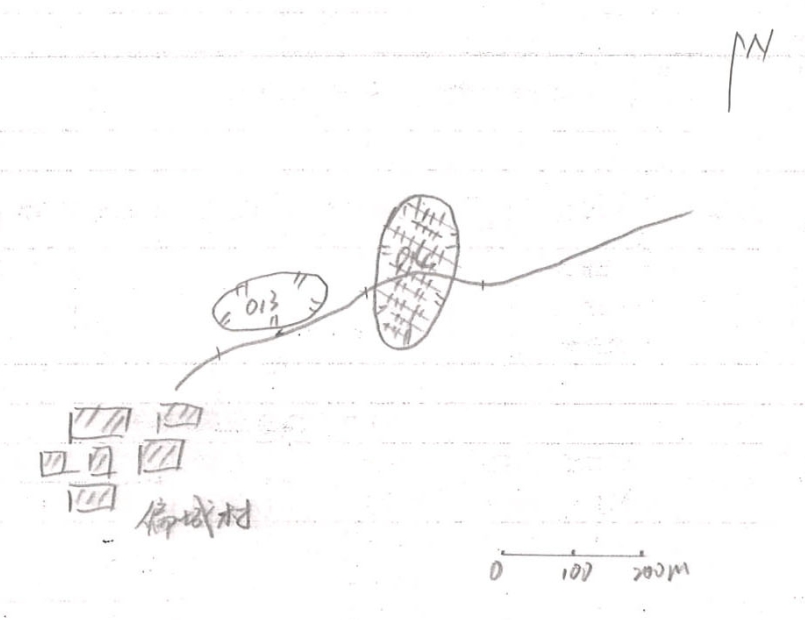 N
013
偏城村
0 100 200M